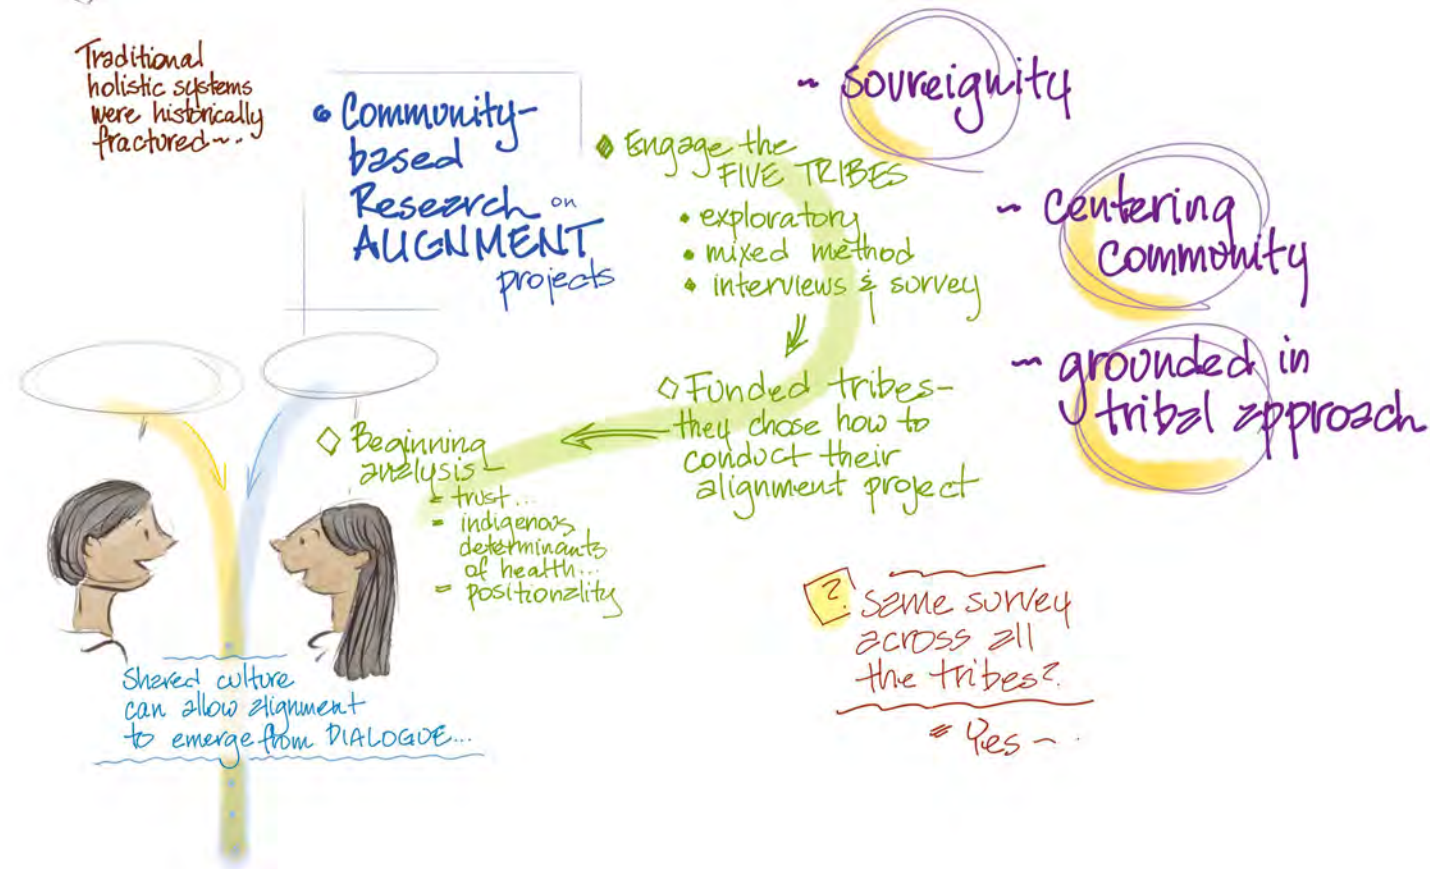 Traditional
holistic systems
were historically
fractured~..
• Community-
based
Research on
ALIGNMENT
projects
Engage the
FIVE TRIBES
• exploratory
• mixed method
• interviews & survey
Funded tribes-
they chose how to
conduct their
alignment project
Beginning
analysis-
= trust...
= indigenous
determinants
of health...
= positionality
~ sovreignity
~ centering
community
~ grounded in
tribal approach
Shared culture
can allow alignment
to emerge from DIALOGUE...
? Same survey
across all
the tribes?
= Yes ~.